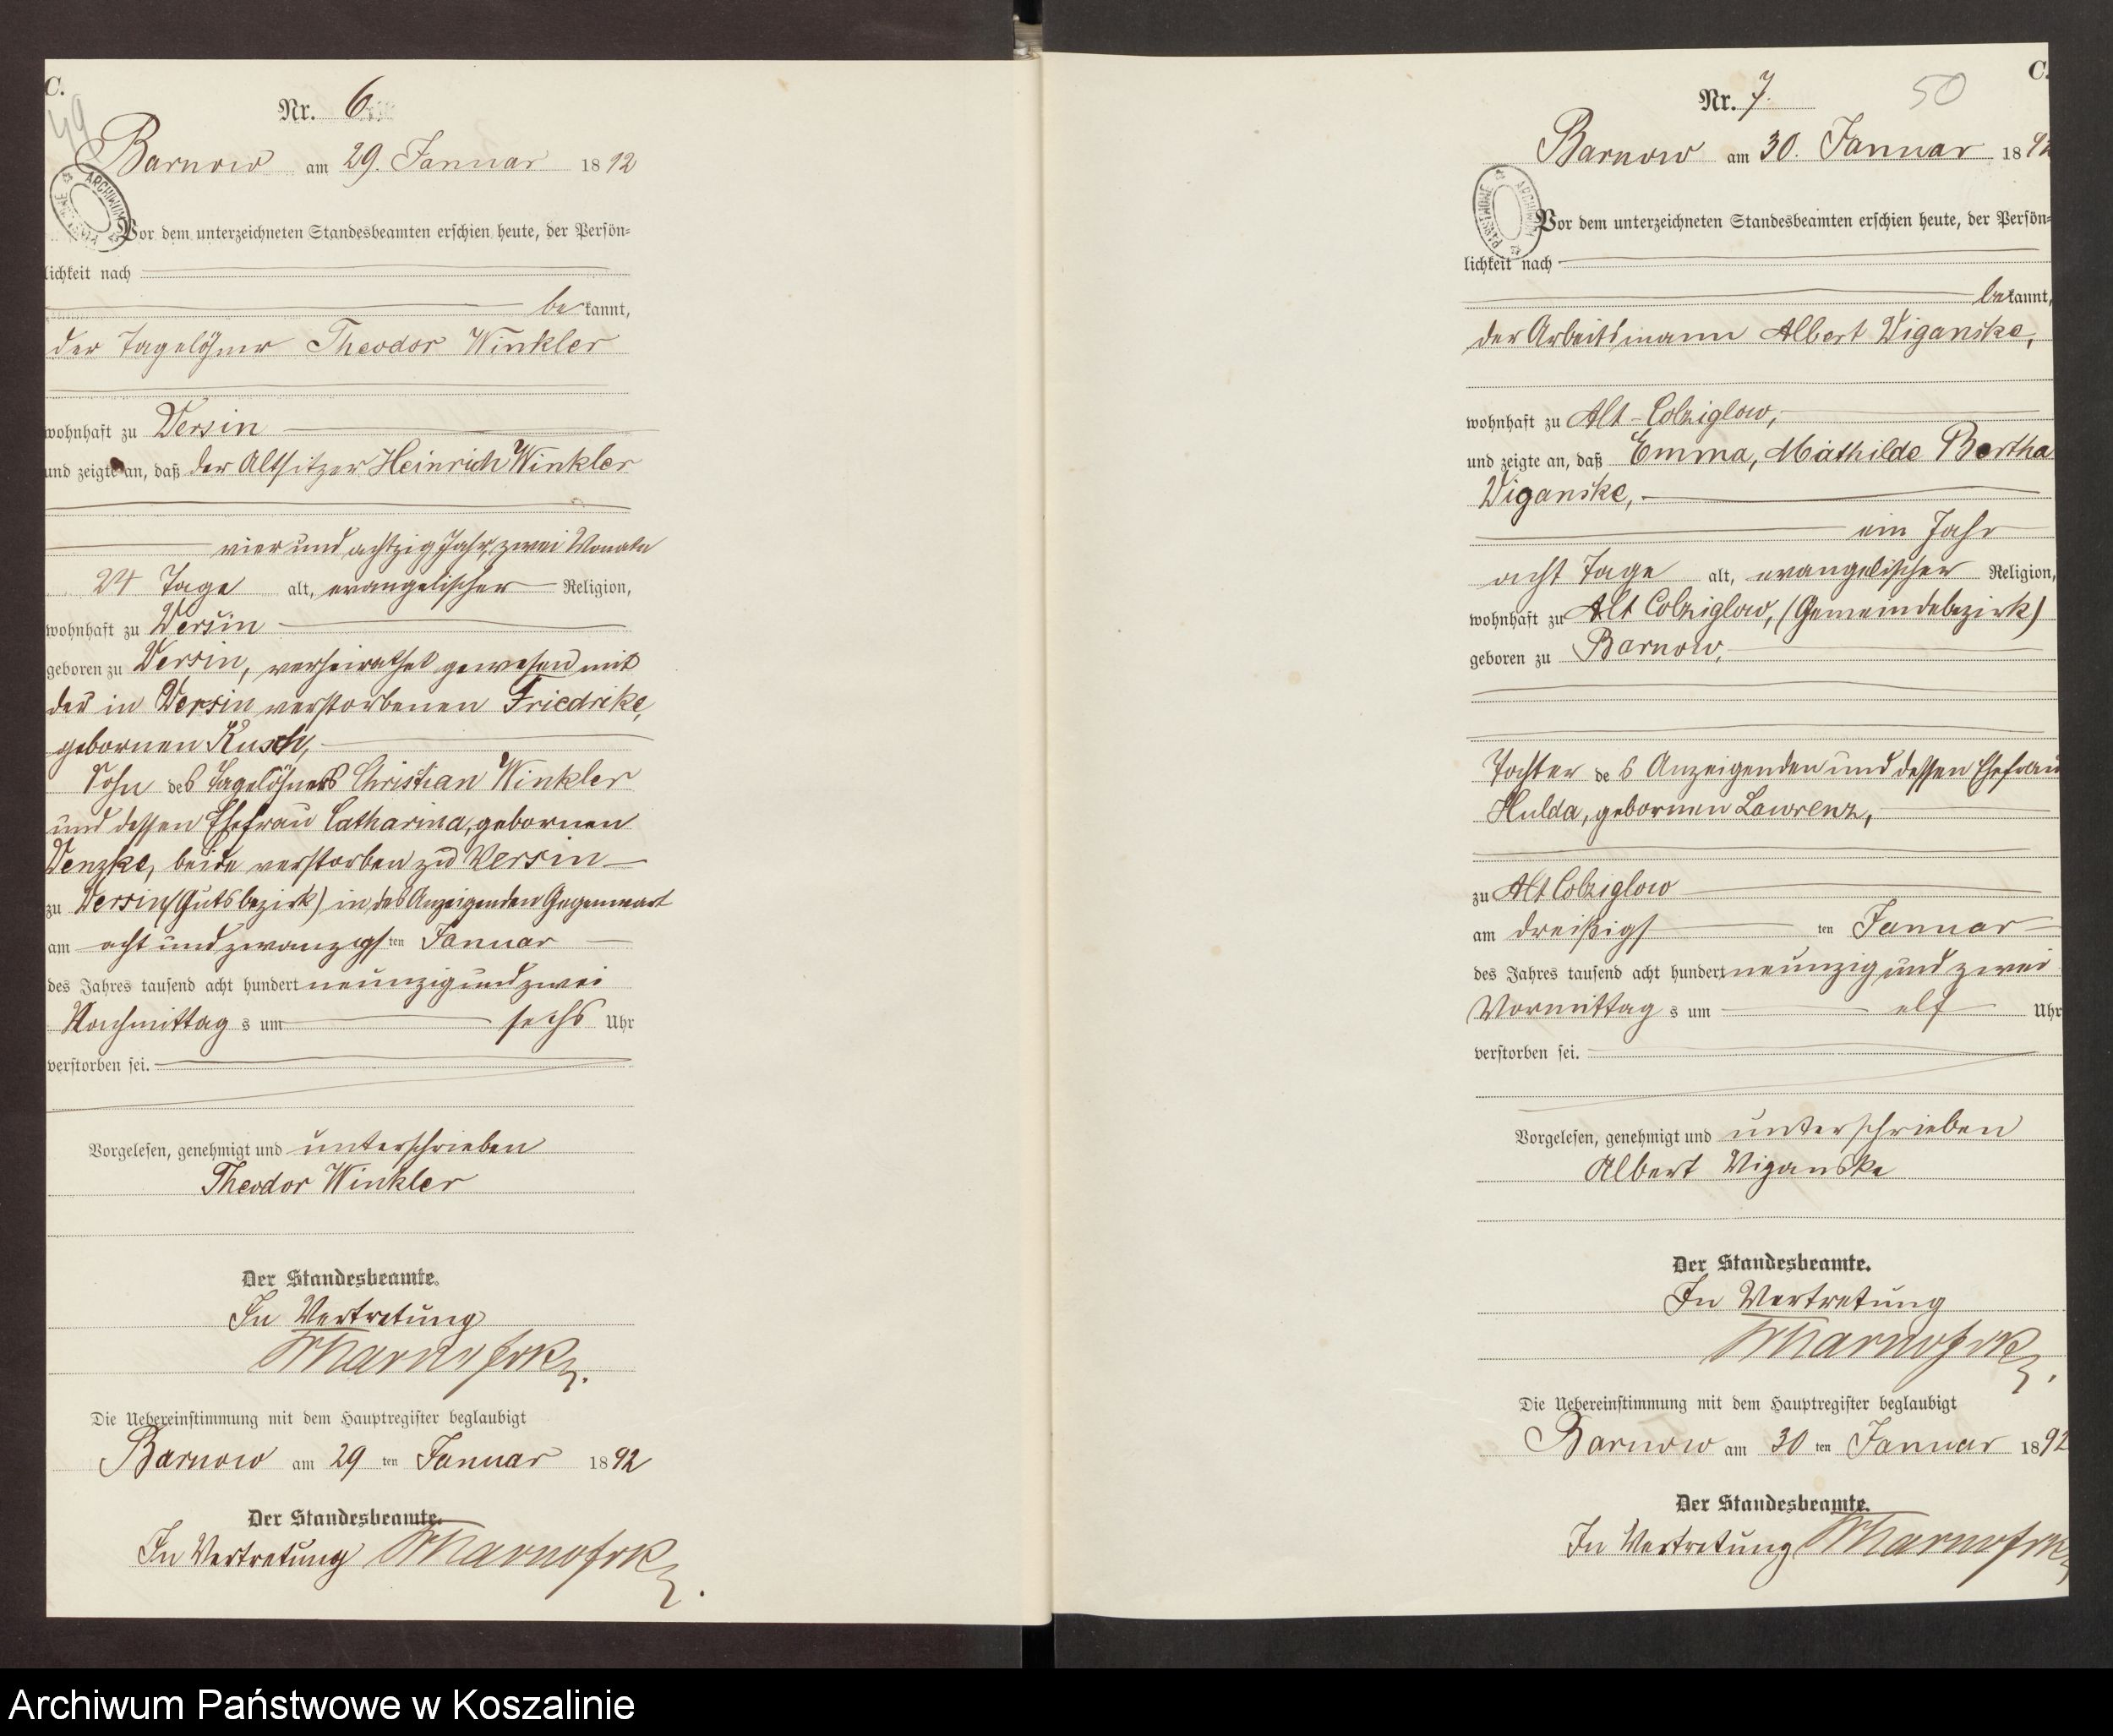 C.
49
Nr. 6
Barnow am 29. Januar 1892
ARCHIWUM PAŃSTWOWE
Vor dem unterzeichneten Standesbeamten erschien heute, der Persön-
lichkeit nach
bekannt,
der Tagelöhner Theodor Winkler
wohnhaft zu Versin
und zeigte an, daß der Altsitzer Heinrich Winkler
vier und achtzig Jahr, zwei Monate
24 Tage alt, evangelischer Religion,
wohnhaft zu Versin
geboren zu Versin, verheirathet gewesen mit
der in Versin verstorbenen Friedrike,
gebornen Kusch,
Sohn des Tagelöhners Christian Winkler
und dessen Ehefrau Catharina, gebornen
Venzke, beide verstorben zu Versin
zu Versin (Gutsbezirk) in des Anzeigenden Gegenwart
am acht und zwanzigsten Januar
des Jahres tausend acht hundert neunzig und zwei
Nachmittags um sechs Uhr
verstorben sei.
Vorgelesen, genehmigt und unterschrieben
Theodor Winkler
Der Standesbeamte.
In Vertretung
Die Uebereinstimmung mit dem Hauptregister beglaubigt
Barnow am 29ten Januar 1892
Der Standesbeamte.
In Vertretung
C.
50
Nr. 7.
Barnow am 30. Januar 1892
ARCHIWUM PAŃSTWOWE
Vor dem unterzeichneten Standesbeamten erschien heute, der Persön-
lichkeit nach
bekannt,
der Arbeitsmann Albert Viganske,
wohnhaft zu Alt-Colziglow,
und zeigte an, daß Emma, Mathilde Bertha
Viganske,
ein Jahr
acht Tage alt, evangelischer Religion,
wohnhaft zu Alt Colziglow, (Gemeindebezirk)
geboren zu Barnow,
Tochter des Anzeigenden und dessen Ehefrau
Hulda, gebornen Lawrenz,
zu Alt Colziglow
am dreißigsten Januar
des Jahres tausend acht hundert neunzig und zwei
Vormittags um elf Uhr
verstorben sei.
Vorgelesen, genehmigt und unterschrieben
Albert Viganske
Der Standesbeamte.
In Vertretung
Die Uebereinstimmung mit dem Hauptregister beglaubigt
Barnow am 30ten Januar 1892
Der Standesbeamte.
In Vertretung
Archiwum Państwowe w Koszalinie